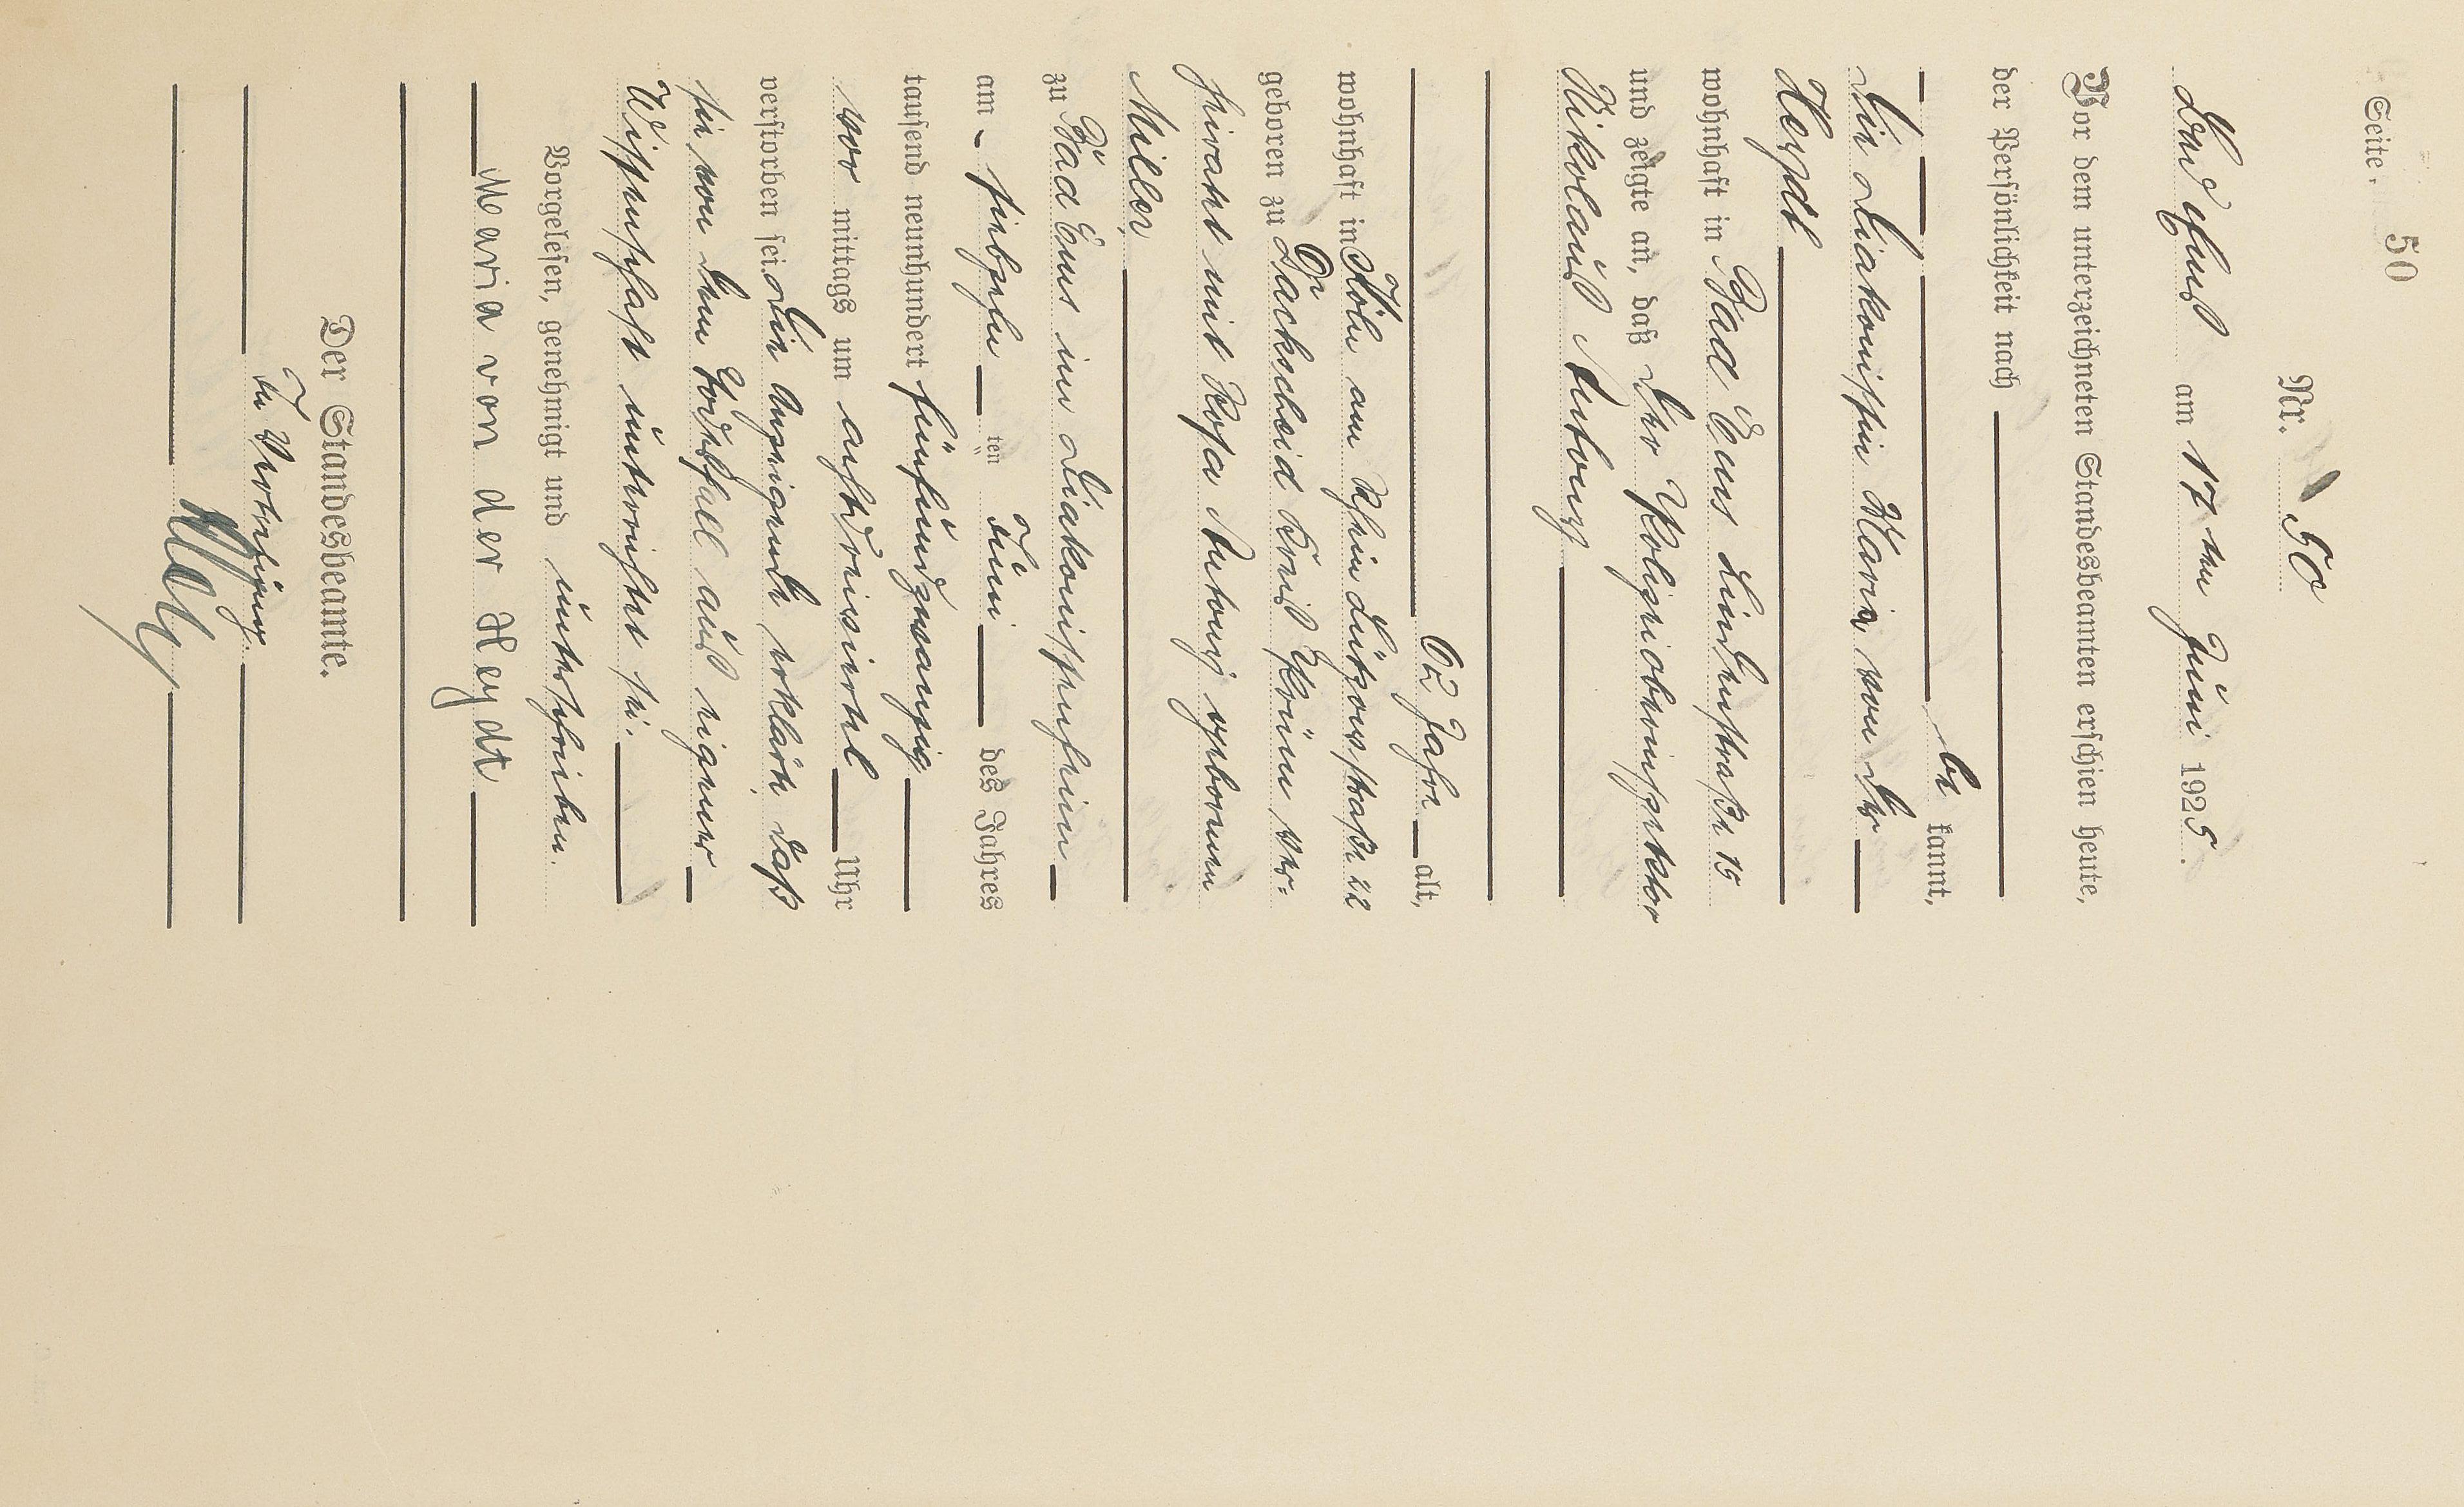 Seite 50
Nr. 50
Bad Ems am 17ten Juni 1925.
Vor dem unterzeichneten Standesbeamten erschien heute,
der Persönlichkeit nach
be kannt,
die Diakonissin Maria von der
Heydt
wohnhaft in Bad Ems Lindenstraße 15
und zeigte an, daß der Polizeiobwinspektor
Nikolaus Neubourg
62 Jahre alt,
wohnhaft in Köln am Rhein Lützowstraße 22
geboren zu Dackscheid Kreis Prüm ver-
heiratet mit Rosa Neubourg geborenen
Miller,
zu Bad Ems im Diakonissenheim
am siebzehnten Juni des Jahres
tausend neunhundert fünfundzwanzig
vor mittags um achtdreiviertel Uhr
verstorben sei. Die Anzeigende erklärte, daß
sie von dem Todesfall aus eigener
Wissenschaft unterrichtet sei.
Vorgelesen, genehmigt und unterschrieben.
Maria von der Heydt
Der Standesbeamte.
In Vertretung.